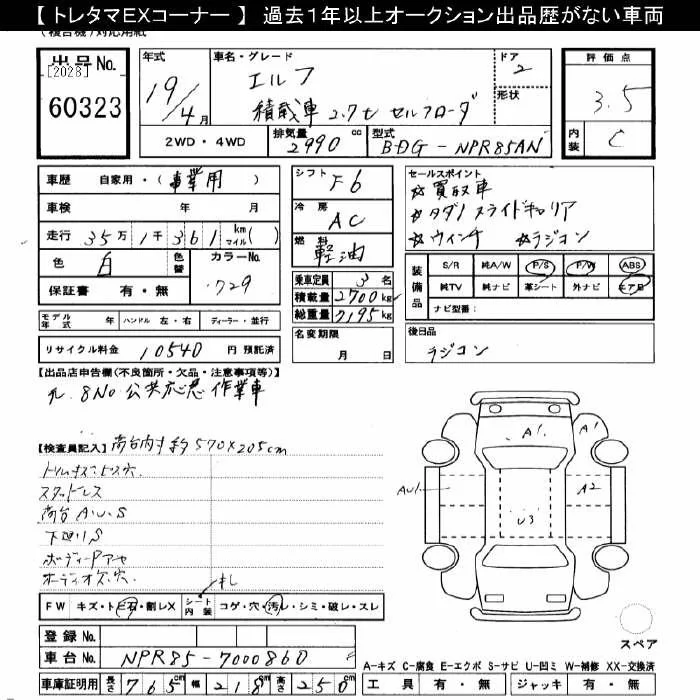 【 トレタマEXコーナー 】 過去1年以上オークション出品歴がない車両
出品No.
[2028]
60323
年式
19/4月
車名・グレード
エルフ
積載車 2.7t セルフローダ
ドア
2
形状
評価点
3.5
内装
C
2WD・4WD
排気量
2990 cc
型式
BDG-NPR85AN
車歴 自家用・(事業用)
車検 年 月
走行 35万1千361 km マイル( )
色 白 色替
カラーNo. 729
保証書 有・無
シフト F6
冷房 AC
燃料 軽油
乗車定員 3 名
積載量 2700 kg
総重量 7195 kg
セールスポイント
☆買取車
☆タダノ スライドキャリア
☆ウィンチ ☆ラジコン
装備品
S/R 純A/W P/S P/W ABS
純TV 純ナビ 革シート 外ナビ エアB
ナビ型番:
モデル年式 年 ハンドル 左・右 ディーラー・並行
リサイクル料金 10540 円 預託済
名変期限
月 日
後日品
ラジコン
【出品店申告欄(不良箇所・欠品・注意事項等)】
8No 公共応急作業車
【検査員記入】荷台内寸約570×205cm
スタッドレス
荷台 A.U.S
下廻りS
A1
A1
AU1
A2
U3
FW キズ・トビ石・割レX
シート内装 コゲ・穴・汚レ・シミ・破レ・スレ
登録No.
車台No. NPR85-7000860
車庫証明用 長さ 765 cm 幅 218 cm 高さ 250 cm
スペア
A-キズ C-腐食 E-エクボ S-サビ U-凹ミ W-補修 XX-交換済
工具 有・無 ジャッキ 有・無